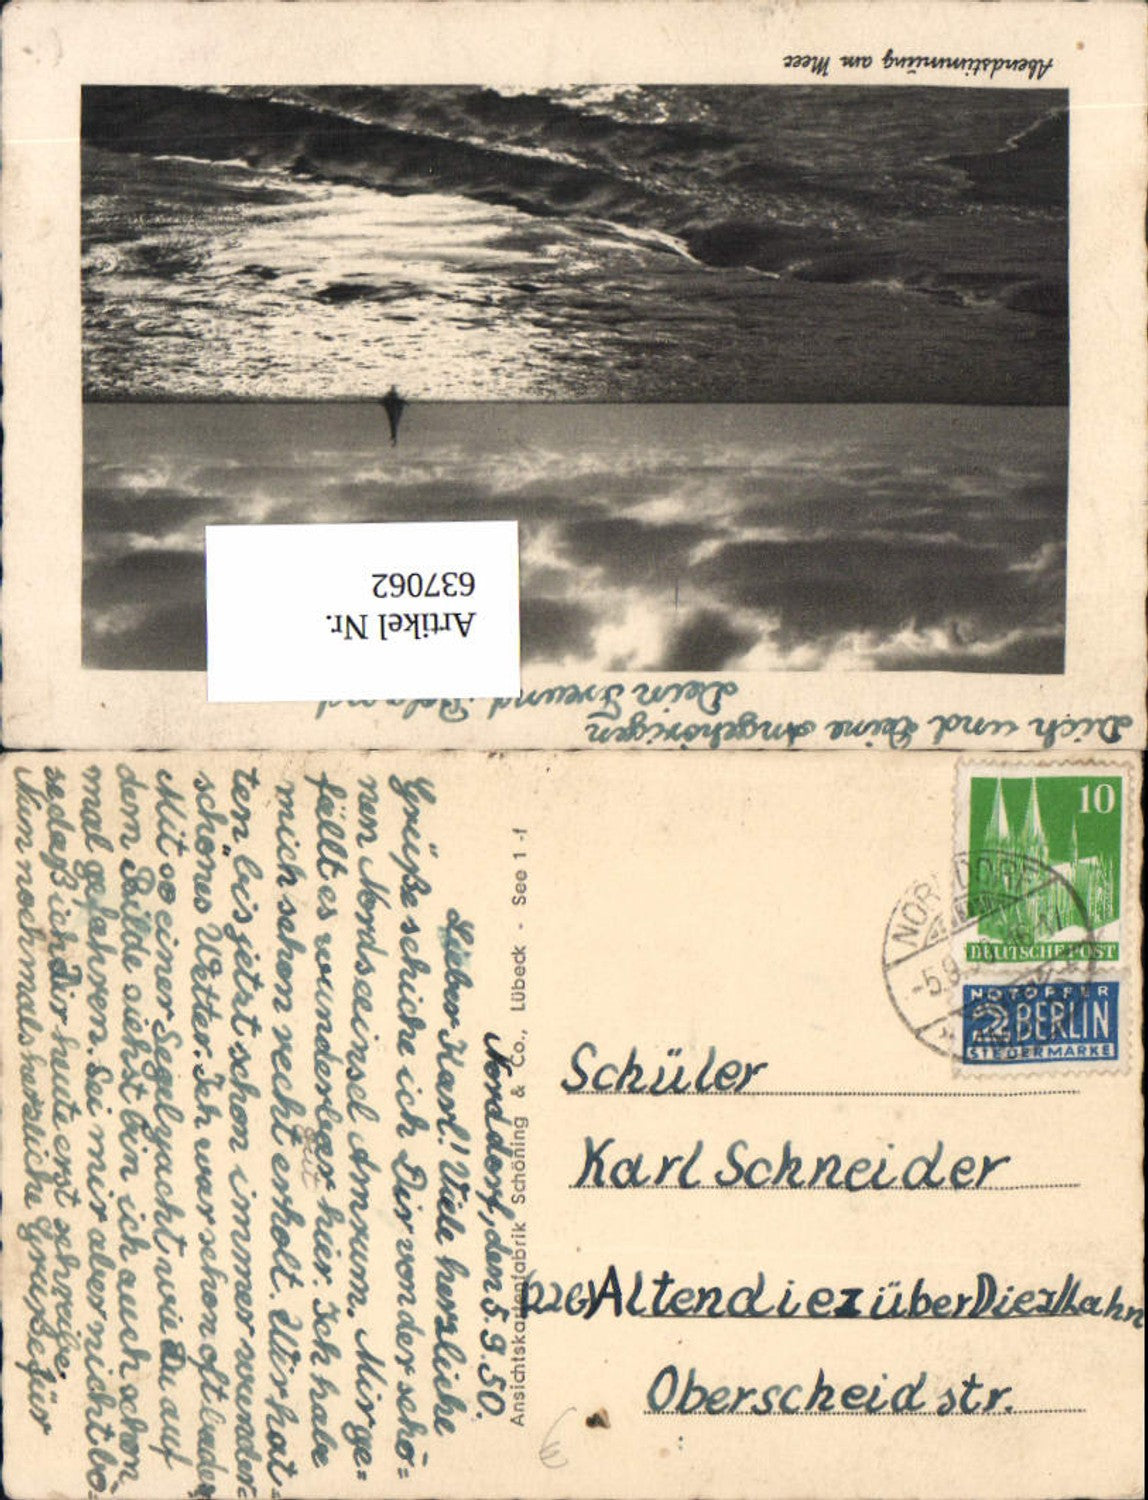 Abendstimmung am Meer
Artikel Nr.
637062
Norddorf, den 5.9.50.
Lieber Karl! Viele herzliche
Grüße schicke ich Dir von der schö=
nen Nordseeinsel Amrum. Mir ge=
fällt es wunderbar hier. Ich habe
mich schon recht erholt. Wir hat=
ten bis jetzt schon immer wunder=
schönes Wetter. Ich war schon oft baden
Mit so einer Segelyacht wie Du auf
dem Bilde siehst bin ich auch schon
mal gefahren. Sei mir aber nicht bö=
se daß ich Dir heute erst schreibe.
Nun nochmals herzliche Grüße für
Dich und Deine Angehörigen
Dein Freund
Ansichtskartenfabrik Schöning & Co., Lübeck - See 1 -f
10
DEUTSCHE POST
NOTOPFER
2 BERLIN
STEUERMARKE
NORDDORF
-5.9.50
Schüler
Karl Schneider
(22G) Altendiez über Diez/Lahn
Oberscheidstr.